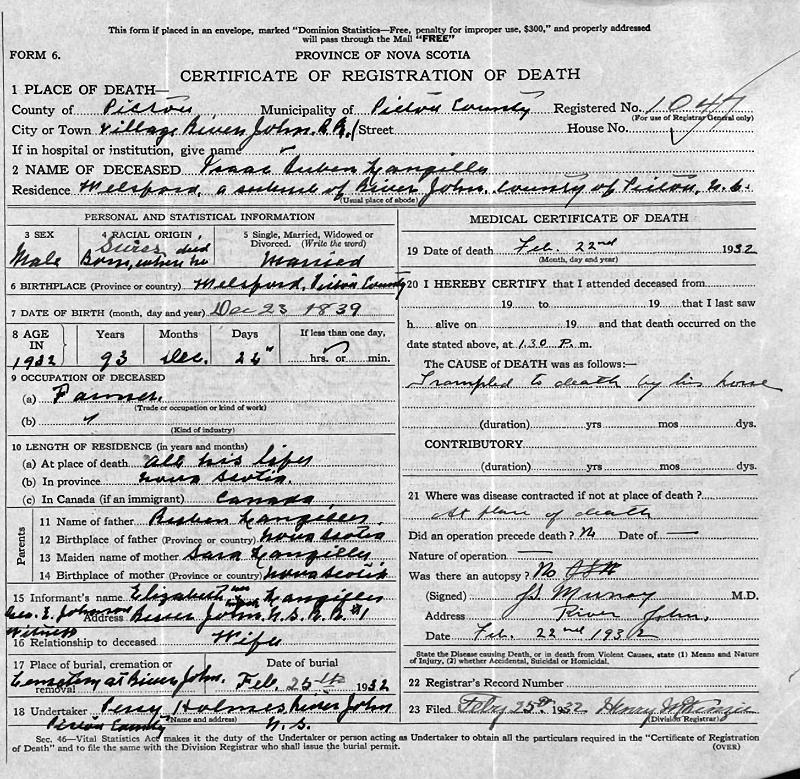 This form if placed in an envelope, marked "Dominion Statistics—Free, penalty for improper use, $300," and properly addressed
will pass through the Mail "FREE"
FORM 6. PROVINCE OF NOVA SCOTIA
CERTIFICATE OF REGISTRATION OF DEATH
1 PLACE OF DEATH—
County of Pictou Municipality of Pictou County Registered No. 1047
(For use of Registrar General only)
City or Town Village River John. Street House No.
If in hospital or institution, give name
2 NAME OF DECEASED Isaac Langille
Residence Welsford, a suburb of River John. County of Pictou, N. S.
(Usual place of abode)
PERSONAL AND STATISTICAL INFORMATION
3 SEX Male
4 RACIAL ORIGIN
Swiss died
Born, when he
5 Single, Married, Widowed or
Divorced. (Write the word)
Married
6 BIRTHPLACE (Province or country) Welsford, Pictou County
7 DATE OF BIRTH (month, day and year) Dec 23 1839
8 AGE
IN
1932
Years 93
Months Dec.
Days
If less than one day,
hrs. or min.
9 OCCUPATION OF DECEASED
(a) Farmer.
(Trade or occupation or kind of work)
(b)
(Kind of industry)
10 LENGTH OF RESIDENCE (in years and months)
(a) At place of death All his life
(b) In province Nova Scotia
(c) In Canada (if an immigrant) Canada
Parents
11 Name of father Langille
12 Birthplace of father (Province or country) Nova Scotia
13 Maiden name of mother Sara Langille
14 Birthplace of mother (Province or country) Nova Scotia
15 Informant's name Elizabeth Langille
Geo. E. Johnson Address River John N.S. R.R #1
Witness
16 Relationship to deceased Wife
17 Place of burial, cremation or
removal
Cemetery at River John.
Date of burial
Feb. 25th 1932
18 Undertaker Percy Holmes River John
(Name and address)
Pictou County N.S.
MEDICAL CERTIFICATE OF DEATH
19 Date of death Feb. 22nd 1932
(Month, day and year)
20 I HEREBY CERTIFY that I attended deceased from
19 to 19 that I last saw
h alive on 19 and that death occurred on the
date stated above, at 1.30 P. m.
The CAUSE of DEATH was as follows:—
Trampled to death by his horse
(duration) yrs mos dys.
CONTRIBUTORY
(duration) yrs mos dys.
21 Where was disease contracted if not at place of death?
At place of death
Did an operation precede death? No Date of —
Nature of operation —
Was there an autopsy? No
(Signed) Murray M.D.
Address River John,
Date Feb. 22nd 1932
State the Disease causing Death, or in death from Violent Causes, state (1) Means and Nature
of Injury, (2) whether Accidental, Suicidal or Homicidal.
22 Registrar's Record Number
23 Filed Feby 25th 1932 Henry McKenzie
(Division Registrar)
Sec. 46—Vital Statistics Act makes it the duty of the Undertaker or person acting as Undertaker to obtain all the particulars required in the "Certificate of Registration
of Death" and to file the same with the Division Registrar who shall issue the burial permit. (OVER)